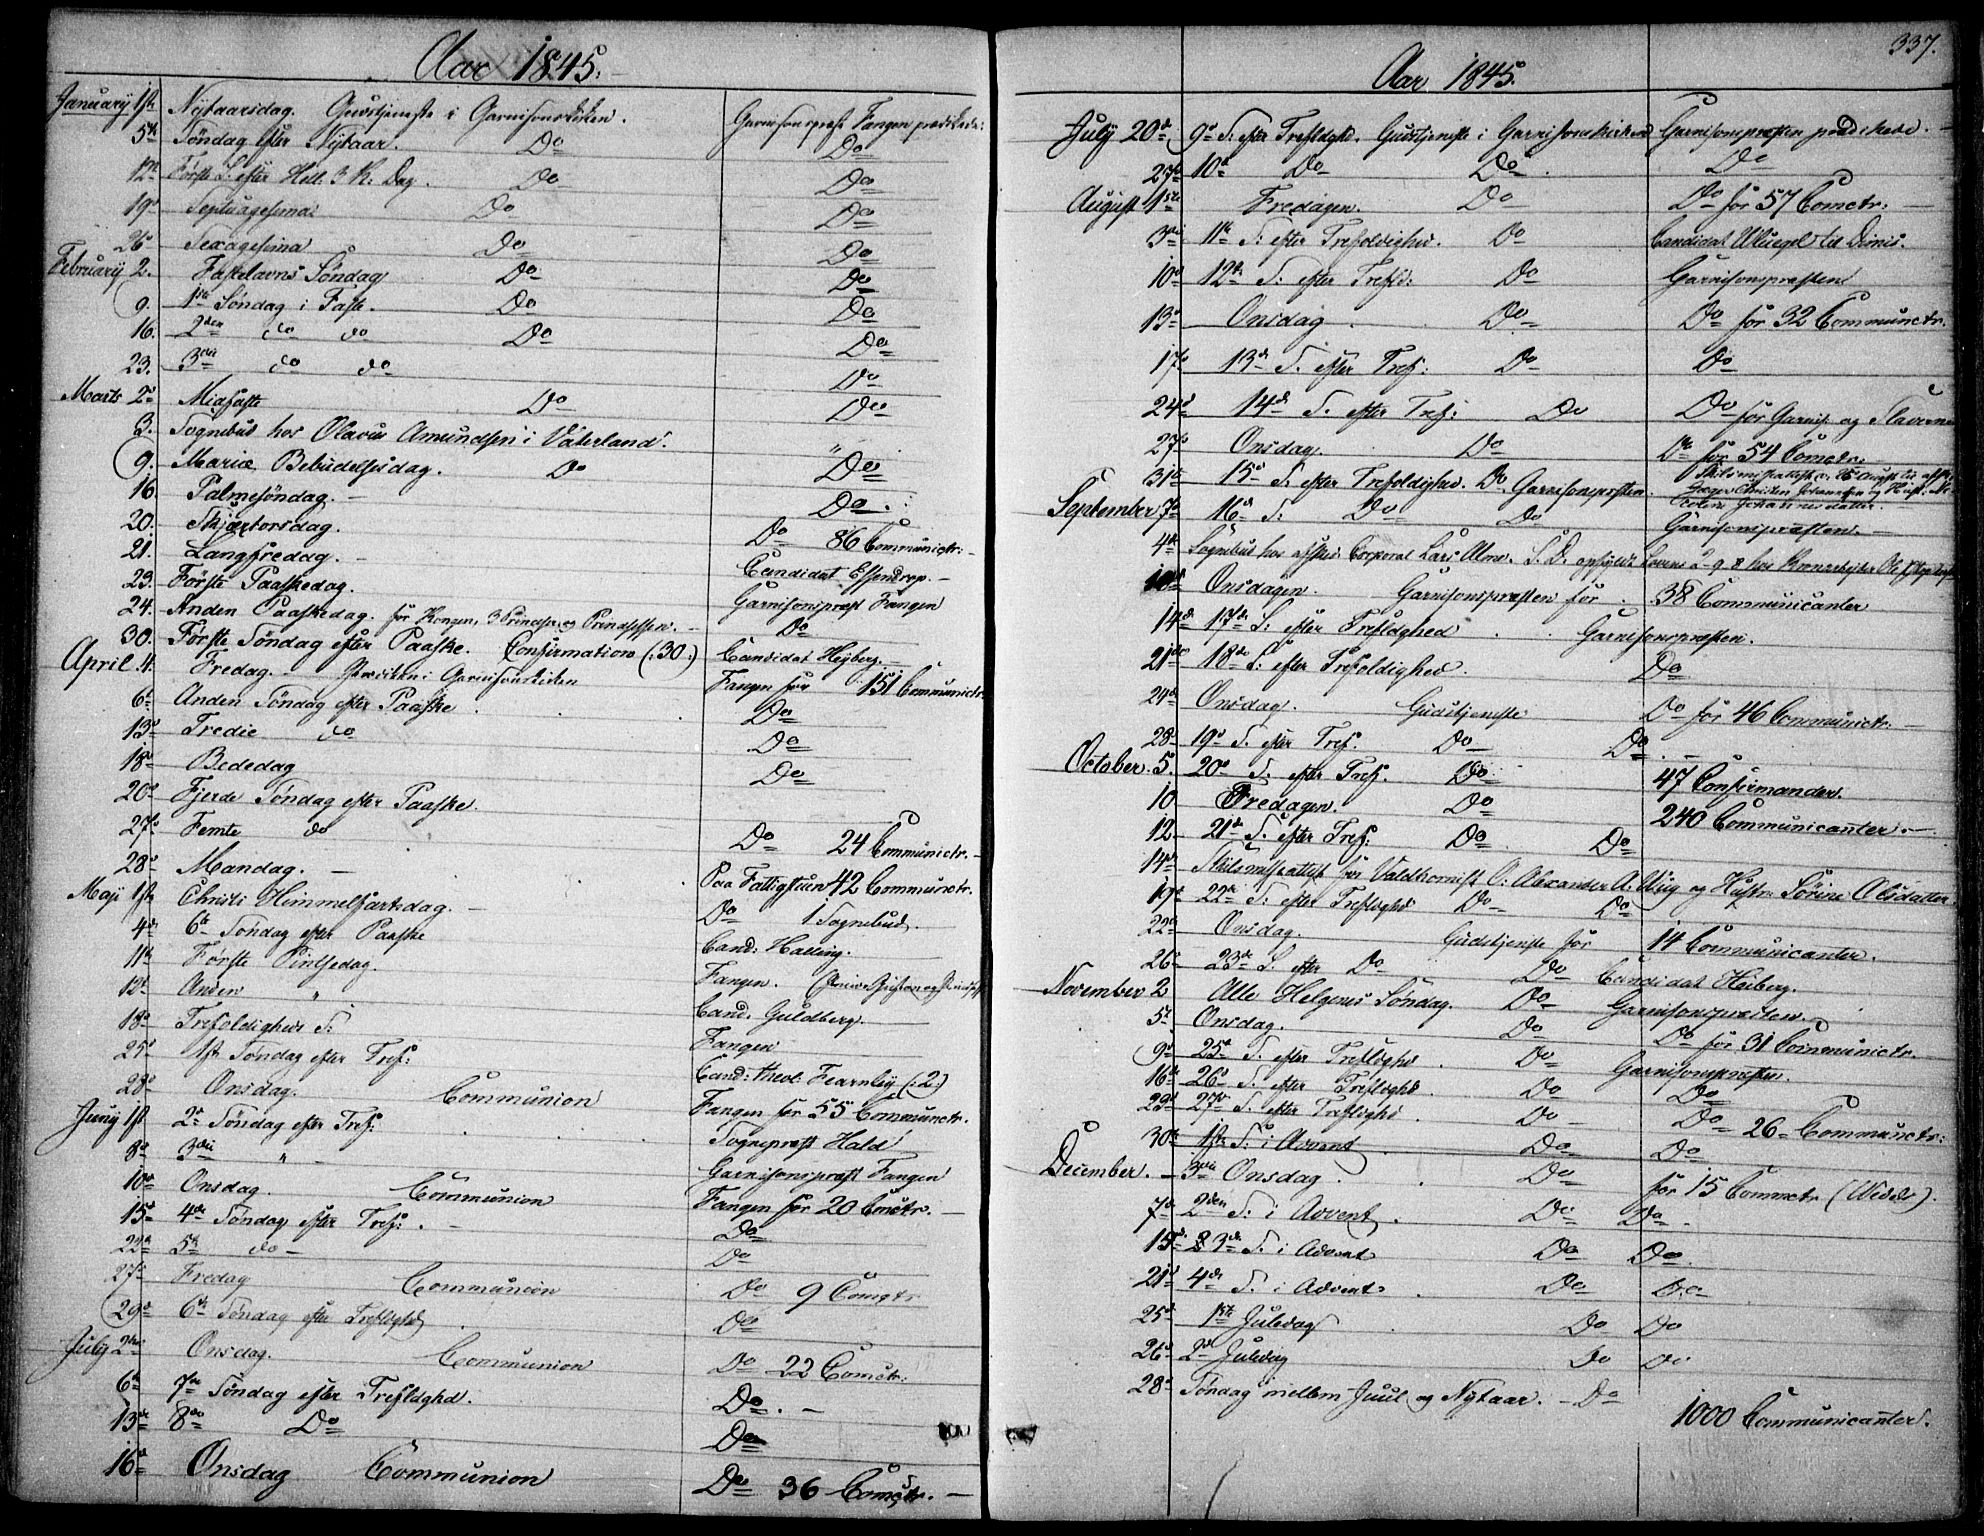 Aar 1845.
January 1ste Nytaarsdag. Gudstjeneste i Garnisonskirken. Garnisonspræst Fangen prædikede.
5te Søndag efter Nytaar. Do Do
12te Første S. efter Hell. 3 K. Dag. Do Do
19de Septuagesima Do Do
26de Sexagesima Do Do
February 2. Fastelavns Søndag Do Do
9. 1ste Søndag i Faste. Do Do
16. 2den do do Do Do
23. 3die do do Do
Marts 2den Midfaste Do Do
3. Sognebud hos Olavus Amundsen i Vaterland. "
9. Mariæ Bebudelsesdag. Do Do
16. Palmesøndag. — Do.
20. Skjærtorsdag. Do 86 Communictr: —
21. Langfredag. — Candidat Essendrop. —
23. Første Paaskedag. Garnisonspræst Fangen
24. Anden Paaskedag. for Kongen, 3 Prindser og Prindsessen. — Do
30. Første Søndag efter Paaske. Confirmation (:30:) Candidat Heyberg. —
April 4. Fredag. — Præken i Garnisonskirken Fangen for 151 Communictr.
6te Anden Søndag efter Paaske Do
13de Tredie do Do
18de Bededag Do
20de Fjerde Søndag efter Paaske.
27de Femte do Do 24 Communictr. —
28de Mandag. — Paa Fattigstuen 42 Communctr.
Maji 1ste Christi Himmelfartsdag. — Do 1 Sognebud.
4de 6te Søndag efter Paaske Cand. Halling.
11te Første Pintsedag. Fangen.
12te Anden " Cand. Guldberg. —
18de Trefoldigheds S: Fangen
25de 1ste Søndag efter Tref: Cand: theol: Fearnley (:2:)
28de Onsdag. Communion Fangen for 55 Communctr.
Juny 1ste 2den Søndag efter Tref: Sognepræst Hald
8de 3die " — Garnisonspræst Fangen
10de Onsdag. Communion Fangen for 20 Comctr. —
15de 4de Søndag efter Tref: . — Do
22de 5te do — Do
27de Fredag Communion Do 9 Comctr
29de 6te Søndag efter Trefldghd Do
July 2den Onsdag. Communion Do 22 Comctr:
6te 7de Søndag efter Trefldghd. Do. —
13de 8de Do Do
16de Onsdag Communion Do 36 Comctr. —
337.
Aar 1845.
July 20de 9de S. efter Trefldghd. Gudstjeneste i Garnisonskirken Garnisonspræsten prædikede. —
27de 10de Do Do Do
August 1ste Fredagen. Do Do for 57 Comctr: —
3die 11te S: efter Trefoldighed. Do Candidat
10de 12te S: efter Trefld: Do Garnisonspræsten
13de Onsdag Do Do for 32 Communctr.
17de 13de S. efter Tref: Do Do
24de 14de S. efter Tref: Do Do for Garnis. og Slaverne
27de Onsdag. Do Do for 54 Comctr.
31te 15de S. efter Trefoldighed. Do Garnisonspræsten.
September 7de 16de S: Do Do Garnisonspræsten. —
4de Sognebud hos afskd. Corporal Lars
10de Onsdagen. Garnisonspræsten for 38 Communicanter
14de 17de S: efter Trefldghed Garnisonspræsten.
21de 18de S: efter Trefoldighed. Do
24de Onsdag. Gudstjeneste Do for 46 Communictr: —
28de 19de S. efter Tref. Do Do . —
October 5. 20de S. efter Tref. Do 47 Confirmander.
10 Fredagen. Do 240 Communicanter. —
12 21de S. efter Tref: Do Do
14de Skilsmisseattest for Valdhornist O: Alexander A. og Hustr: Sørine Olsdatter
19de 22de S: efter Trefldghd Do Do
22de Onsdag. Gudstjeneste for 14 Communicanter.
26de 23de S. efter Do Do Candidat Heiberg.
November 2 Alle Helgenes Søndag. Do Garnisonspræsten.
5te Onsdag. Do Do for 31 Communictr.
9de 25de S. efter Trefldghd Do Garnisonspræsten.
16de 26de S. efter Trefldghd. Do Do
23de 27de S. efter Trefldghd. Do Do 26 Communctr:
30te 1ste S. i Advent Do Do
December. — 3die Onsdag Do for 15 Commctr (Wedel).
7de 2den S: i Advent Do Do
15de 3de S. i Advent Do Do.
21de 4de S. i Advent Do Do
25de 1ste Juledag Do Do
26de 2d Juledag Do Do
28de Søndag mellem Juul og Nytaar. — Do
1000 Communicanter.